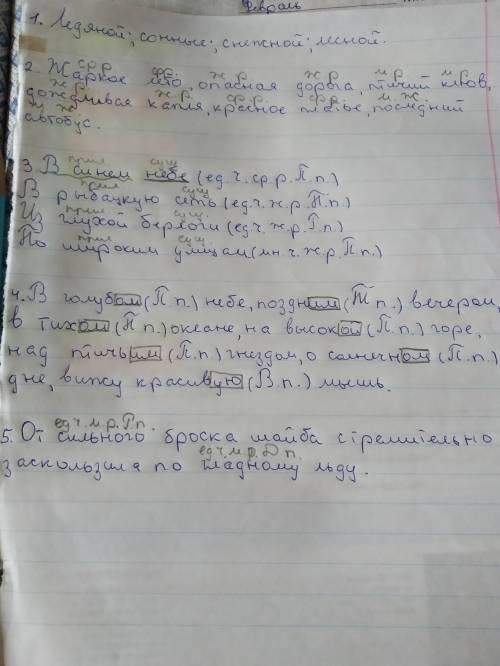 Февраль
1. Ледяной; сонные; снежной; лесной.
ср р ср. ж р ж р м. р м. р
2. Жаркое лето, опасная дорога, птичий клюв,
ж. р. ж. р. ср. р ср. р м. ж
дождливая капля, красное платье, последний
м ж
автобус.
прил сущ
3. В синем небе (ед. ч. ср. р. П. п.)
прил сущ
В рыбацкую сеть (ед. ч. ж. р. П. п.)
прил сущ.
Из глухой берлоги (ед. ч. ж. р. Р. п.)
прил сущ.
По широким улицам (мн. ч. ж. р. П п.)
4. В голубом (П п.) небе, поздним (Т п.) вечером,
в тихом (П п.) океане, на высокой (П п.) горе,
над птичьим (П. п.) гнездом, о солнечном (П. п.)
дне, вижу красивую (В. п.) мышь.
ед ч. м. р. Р п.
5. От сильного броска шайба стремительно
ед ч. м. р. Д п.
заскользила по гладному льду.